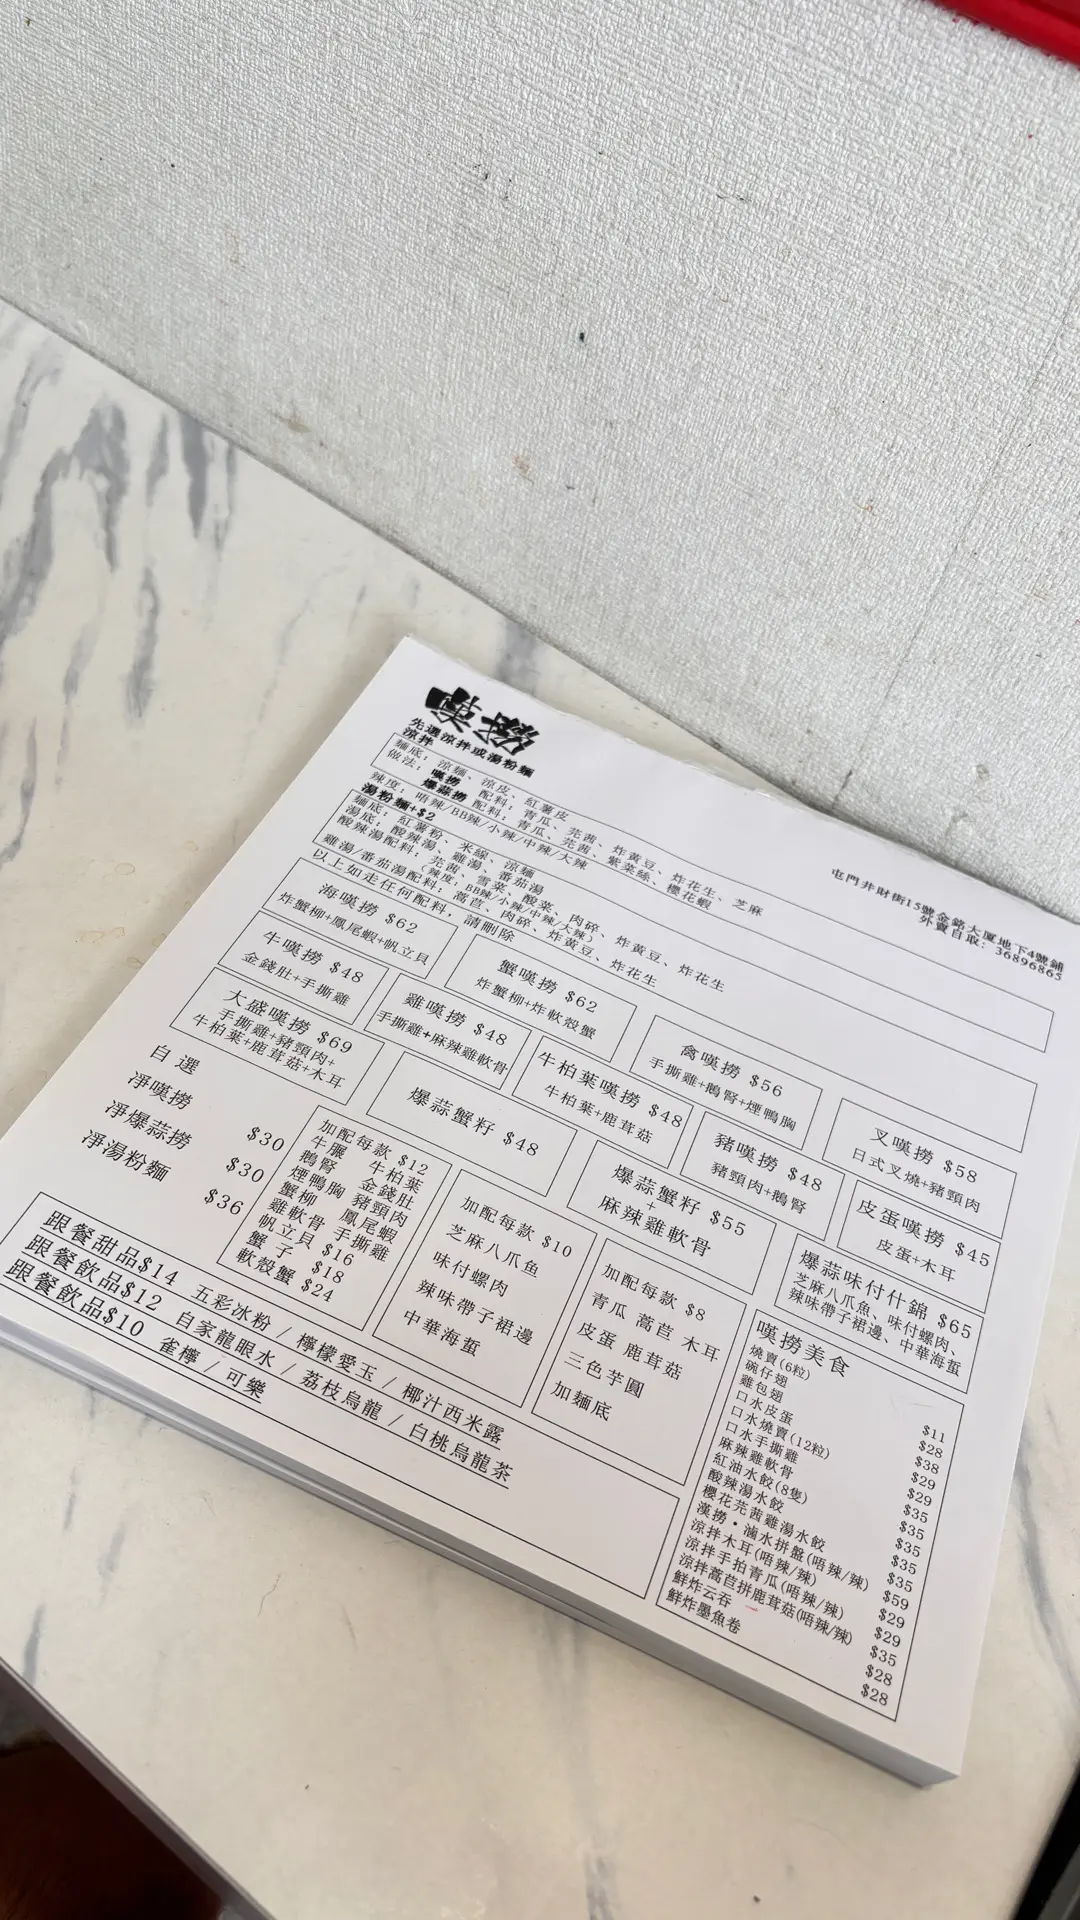 嘆撈
先選涼拌或湯粉麵
涼拌
麵底：涼麵、涼皮、紅薯皮
做法：嘆撈 配料：青瓜、芫茜、炸黃豆、炸花生、芝麻
爆蒜撈 配料：青瓜、芫茜、紫菜絲、櫻花蝦
辣度：唔辣/BB辣/小辣/中辣/大辣
湯粉麵+$2
麵底：紅薯粉、米線、涼麵
湯底：酸辣湯、雞湯、番茄湯
酸辣湯配料：芫茜、雪菜、酸菜、肉碎、炸黃豆、炸花生
(辣度：BB辣/小辣/中辣/大辣)
雞湯/番茄湯配料：萵苣、肉碎、炸黃豆、炸花生
以上如走任何配料，請刪除
屯門井財街15號金銘大廈地下4號鋪
外賣自取：36896865
海嘆撈 $62
炸蟹柳+鳳尾蝦+帆立貝
蟹嘆撈 $62
炸蟹柳+炸軟殼蟹
禽嘆撈 $56
手撕雞+鵝腎+煙鴨胸
叉嘆撈 $58
日式叉燒+豬頸肉
牛嘆撈 $48
金錢肚+手撕雞
雞嘆撈 $48
手撕雞+麻辣雞軟骨
牛柏葉嘆撈 $48
牛柏葉+鹿茸菇
豬嘆撈 $48
豬頸肉+鵝腎
皮蛋嘆撈 $45
皮蛋+木耳
大盛嘆撈 $69
手撕雞+豬頸肉+
牛柏葉+鹿茸菇+木耳
爆蒜蟹籽 $48
爆蒜蟹籽 $55
+
麻辣雞軟骨
爆蒜味付什錦 $65
芝麻八爪魚、味付螺肉、
辣味帶子裙邊、中華海蜇
自選
淨嘆撈 $30
淨爆蒜撈 $30
淨湯粉麵 $36
加配每款 $12
牛𦟌 牛柏葉
鵝腎 金錢肚
煙鴨胸 豬頸肉
蟹柳 鳳尾蝦
雞軟骨 手撕雞
帆立貝 $16
蟹子 $18
軟殼蟹 $24
加配每款 $10
芝麻八爪魚
味付螺肉
辣味帶子裙邊
中華海蜇
加配每款 $8
青瓜 萵苣 木耳
皮蛋 鹿茸菇
三色芋圓
加麵底
嘆撈美食
燒賣(6粒) $11
碗仔翅 $28
雞包翅 $38
口水皮蛋 $29
口水燒賣(12粒) $29
口水手撕雞 $35
麻辣雞軟骨 $35
紅油水餃(8隻) $35
酸辣湯水餃 $35
櫻花芫茜雞湯水餃 $35
漢撈·滷水拼盤(唔辣/辣) $59
涼拌木耳(唔辣/辣) $29
涼拌手拍青瓜(唔辣/辣) $29
涼拌萵苣拼鹿茸菇(唔辣/辣) $35
鮮炸云吞 $28
鮮炸墨魚卷 $28
跟餐甜品$14 五彩冰粉 / 檸檬愛玉 / 椰汁西米露
跟餐飲品$12 自家龍眼水 / 荔枝烏龍 / 白桃烏龍茶
跟餐飲品$10 雀檸 / 可樂